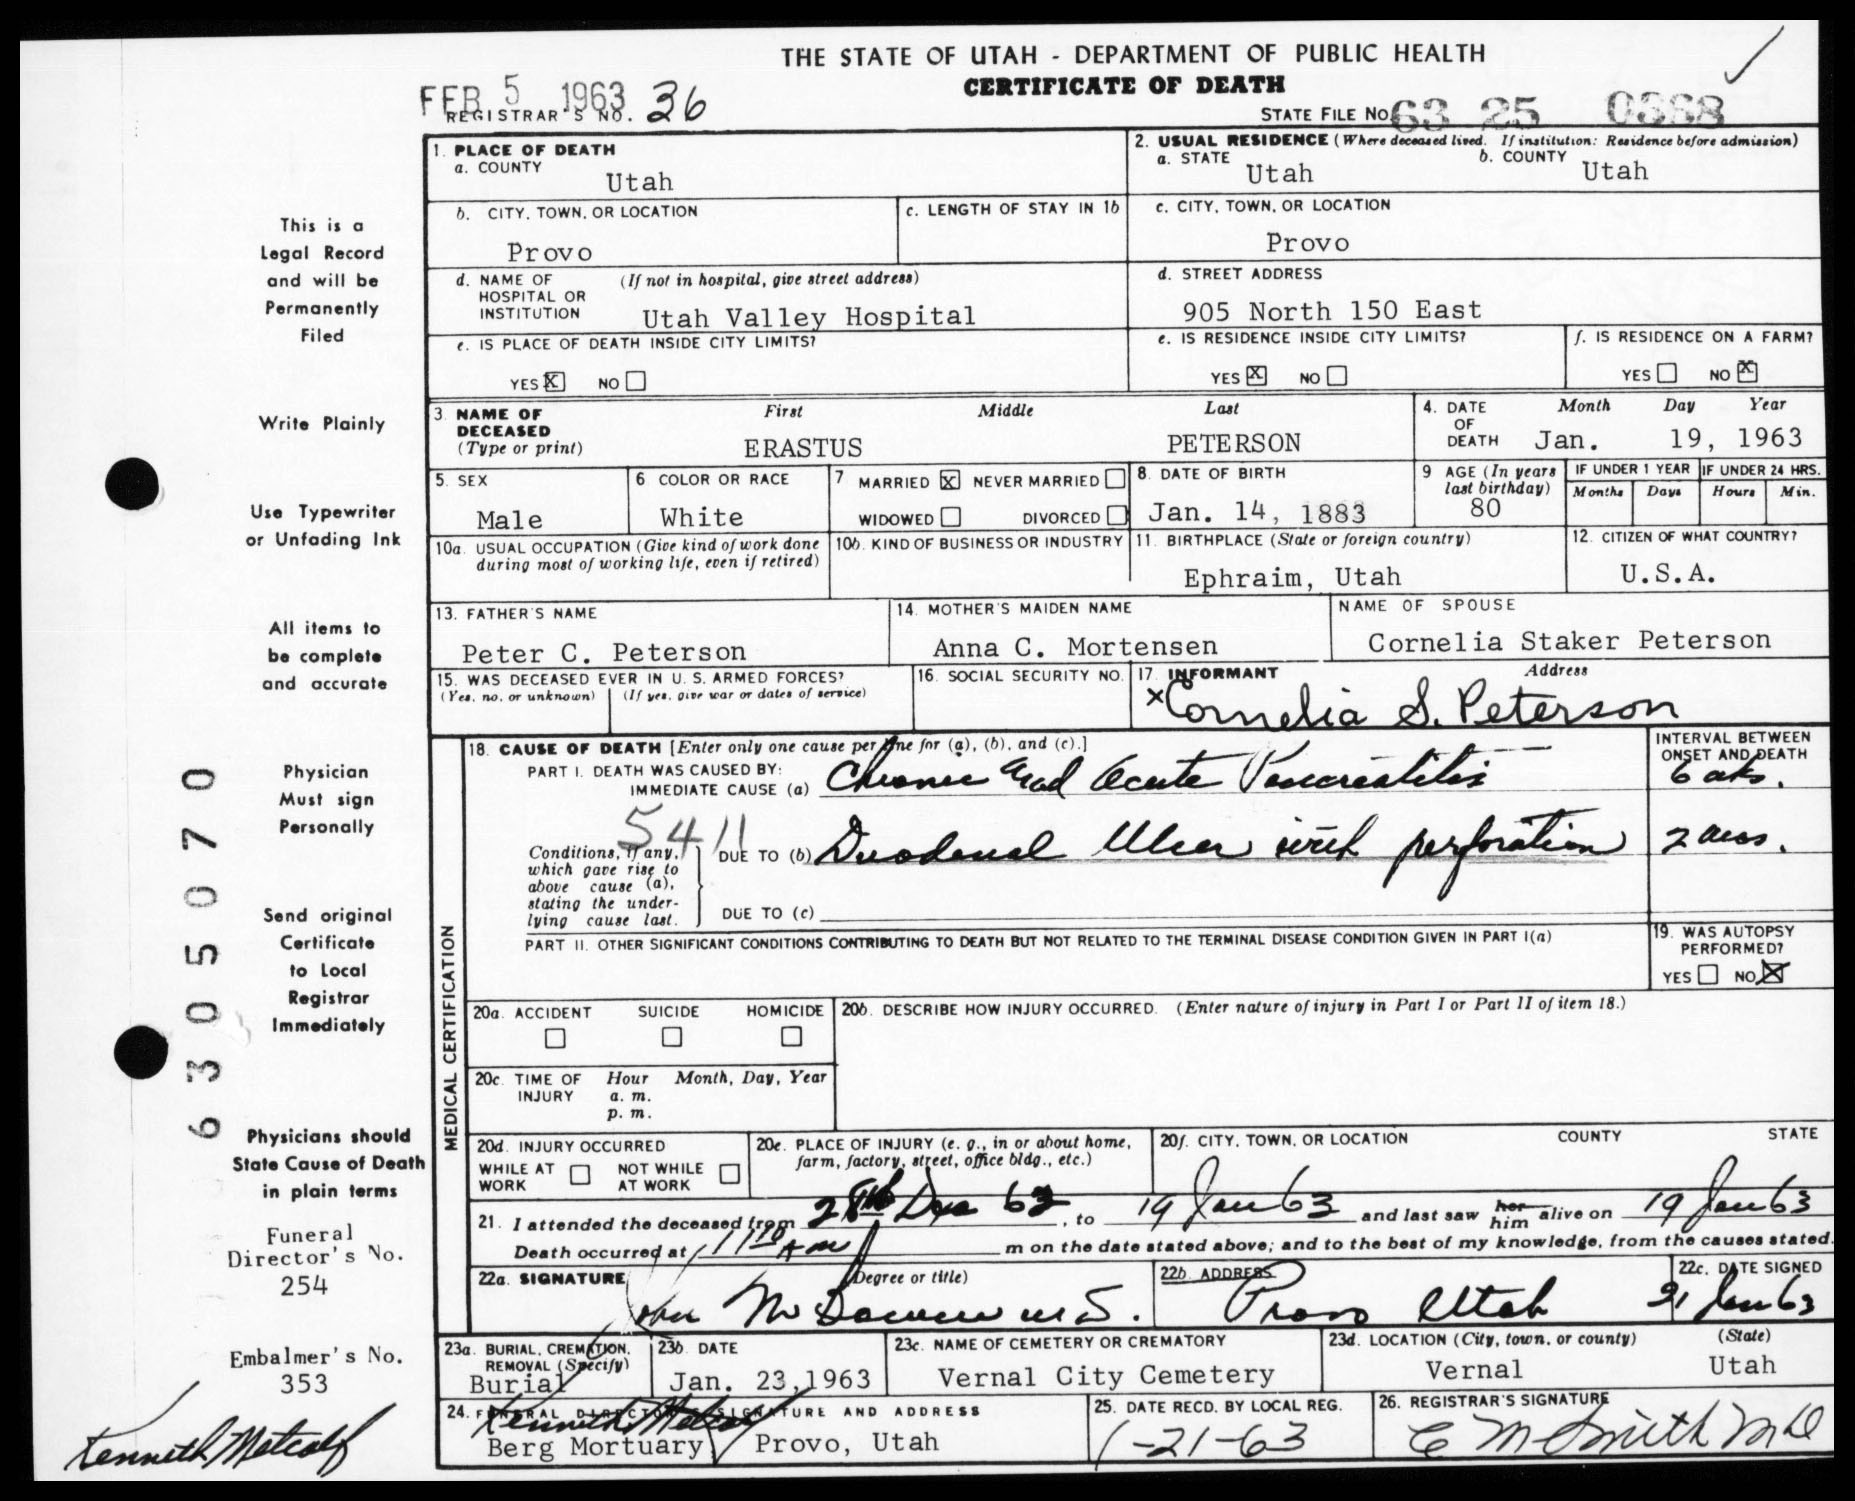 THE STATE OF UTAH - DEPARTMENT OF PUBLIC HEALTH
CERTIFICATE OF DEATH
FEB 5 1963
REGISTRAR'S NO. 36
STATE FILE NO. 63 25 0368
This is a
Legal Record
and will be
Permanently
Filed
Write Plainly
Use Typewriter
or Unfading Ink
All items to
be complete
and accurate
Physician
Must sign
Personally
Send original
Certificate
to Local
Registrar
Immediately
Physicians should
State Cause of Death
in plain terms
Funeral
Director's No.
254
Embalmer's No.
353
Kenneth Metcalf
6305070
1. PLACE OF DEATH
a. COUNTY
Utah
2. USUAL RESIDENCE (Where deceased lived. If institution: Residence before admission)
a. STATE
Utah
b. COUNTY
Utah
b. CITY, TOWN, OR LOCATION
Provo
c. LENGTH OF STAY IN 1b
c. CITY, TOWN, OR LOCATION
Provo
d. NAME OF HOSPITAL OR INSTITUTION
(If not in hospital, give street address)
Utah Valley Hospital
d. STREET ADDRESS
905 North 150 East
e. IS PLACE OF DEATH INSIDE CITY LIMITS?
YES X NO
e. IS RESIDENCE INSIDE CITY LIMITS?
YES X NO
f. IS RESIDENCE ON A FARM?
YES NO X
3. NAME OF DECEASED
(Type or print)
First Middle Last
ERASTUS PETERSON
4. DATE OF DEATH
Month Day Year
Jan. 19, 1963
5. SEX
Male
6 COLOR OR RACE
White
7 MARRIED X NEVER MARRIED
WIDOWED DIVORCED
8. DATE OF BIRTH
Jan. 14, 1883
9 AGE (In years last birthday)
80
IF UNDER 1 YEAR
Months Days
IF UNDER 24 HRS.
Hours Min.
10a. USUAL OCCUPATION (Give kind of work done
during most of working life, even if retired)
10b. KIND OF BUSINESS OR INDUSTRY
11. BIRTHPLACE (State or foreign country)
Ephraim, Utah
12. CITIZEN OF WHAT COUNTRY?
U.S.A.
13. FATHER'S NAME
Peter C. Peterson
14. MOTHER'S MAIDEN NAME
Anna C. Mortensen
NAME OF SPOUSE
Cornelia Staker Peterson
15. WAS DECEASED EVER IN U. S. ARMED FORCES?
(Yes, no, or unknown) (If yes, give war or dates of service)
16. SOCIAL SECURITY NO.
17. INFORMANT Address
x Cornelia S. Peterson
MEDICAL CERTIFICATION
18. CAUSE OF DEATH [Enter only one cause per line for (a), (b), and (c).]
INTERVAL BETWEEN
ONSET AND DEATH
PART I. DEATH WAS CAUSED BY:
IMMEDIATE CAUSE (a) Chronic and Acute Pancreatitis
5411
Conditions, if any,
which gave rise to
above cause (a),
stating the under-
lying cause last.
DUE TO (b) Duodenal Ulcer with perforation
DUE TO (c)
PART II. OTHER SIGNIFICANT CONDITIONS CONTRIBUTING TO DEATH BUT NOT RELATED TO THE TERMINAL DISEASE CONDITION GIVEN IN PART I(a)
19. WAS AUTOPSY
PERFORMED?
YES NO X
20a. ACCIDENT SUICIDE HOMICIDE
20b. DESCRIBE HOW INJURY OCCURRED. (Enter nature of injury in Part I or Part II of item 18.)
20c. TIME OF INJURY
Hour Month, Day, Year
a. m.
p. m.
20d. INJURY OCCURRED
WHILE AT WORK
NOT WHILE AT WORK
20e. PLACE OF INJURY (e. g., in or about home,
farm, factory, street, office bldg., etc.)
20f. CITY, TOWN, OR LOCATION COUNTY STATE
21. I attended the deceased from 28th Dec 62, to 19 Jan 63 and last saw her him alive on 19 Jan 63
Death occurred at 11 10 AM m on the date stated above; and to the best of my knowledge, from the causes stated.
22a. SIGNATURE (Degree or title)
22b. ADDRESS
Provo Utah
22c. DATE SIGNED
21 Jan 63
23a. BURIAL, CREMATION,
REMOVAL (Specify)
Burial
23b. DATE
Jan. 23, 1963
23c. NAME OF CEMETERY OR CREMATORY
Vernal City Cemetery
23d. LOCATION (City, town, or county) (State)
Vernal Utah
24. FUNERAL DIRECTOR'S SIGNATURE AND ADDRESS
Kenneth Metcalf
Berg Mortuary Provo, Utah
25. DATE RECD. BY LOCAL REG.
1-21-63
26. REGISTRAR'S SIGNATURE
E M Smith MD